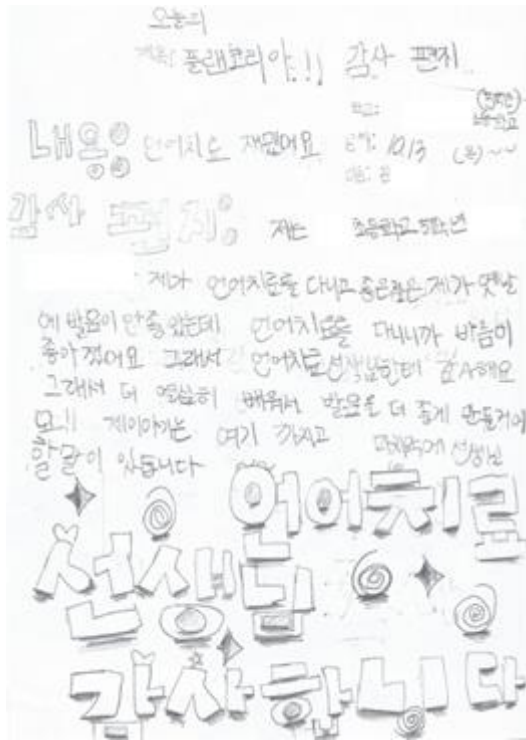 오늘의
제목: 플랜코리아!! 감사 편지
학교: 초등학교
내용: 언어치료 재밌어요 날짜: 10/3 (목)~~
이름:
감사 편지: 저는 초등학교 5학년
제가 언어치료를 다니고 좋은점은 제가 옛날
에 발음이 안좋았는데 언어치료를 다니니까 발음이
좋아졌어요 그래서 언어치료선생님한테 감사해요
그래서 더 열심히 배워서 발음을 더 좋게 만들거에
요!! 제이야기는 여기 까지고 마지막에 선생님
할말이 있습니다
언어치료
선생님
감사합니다